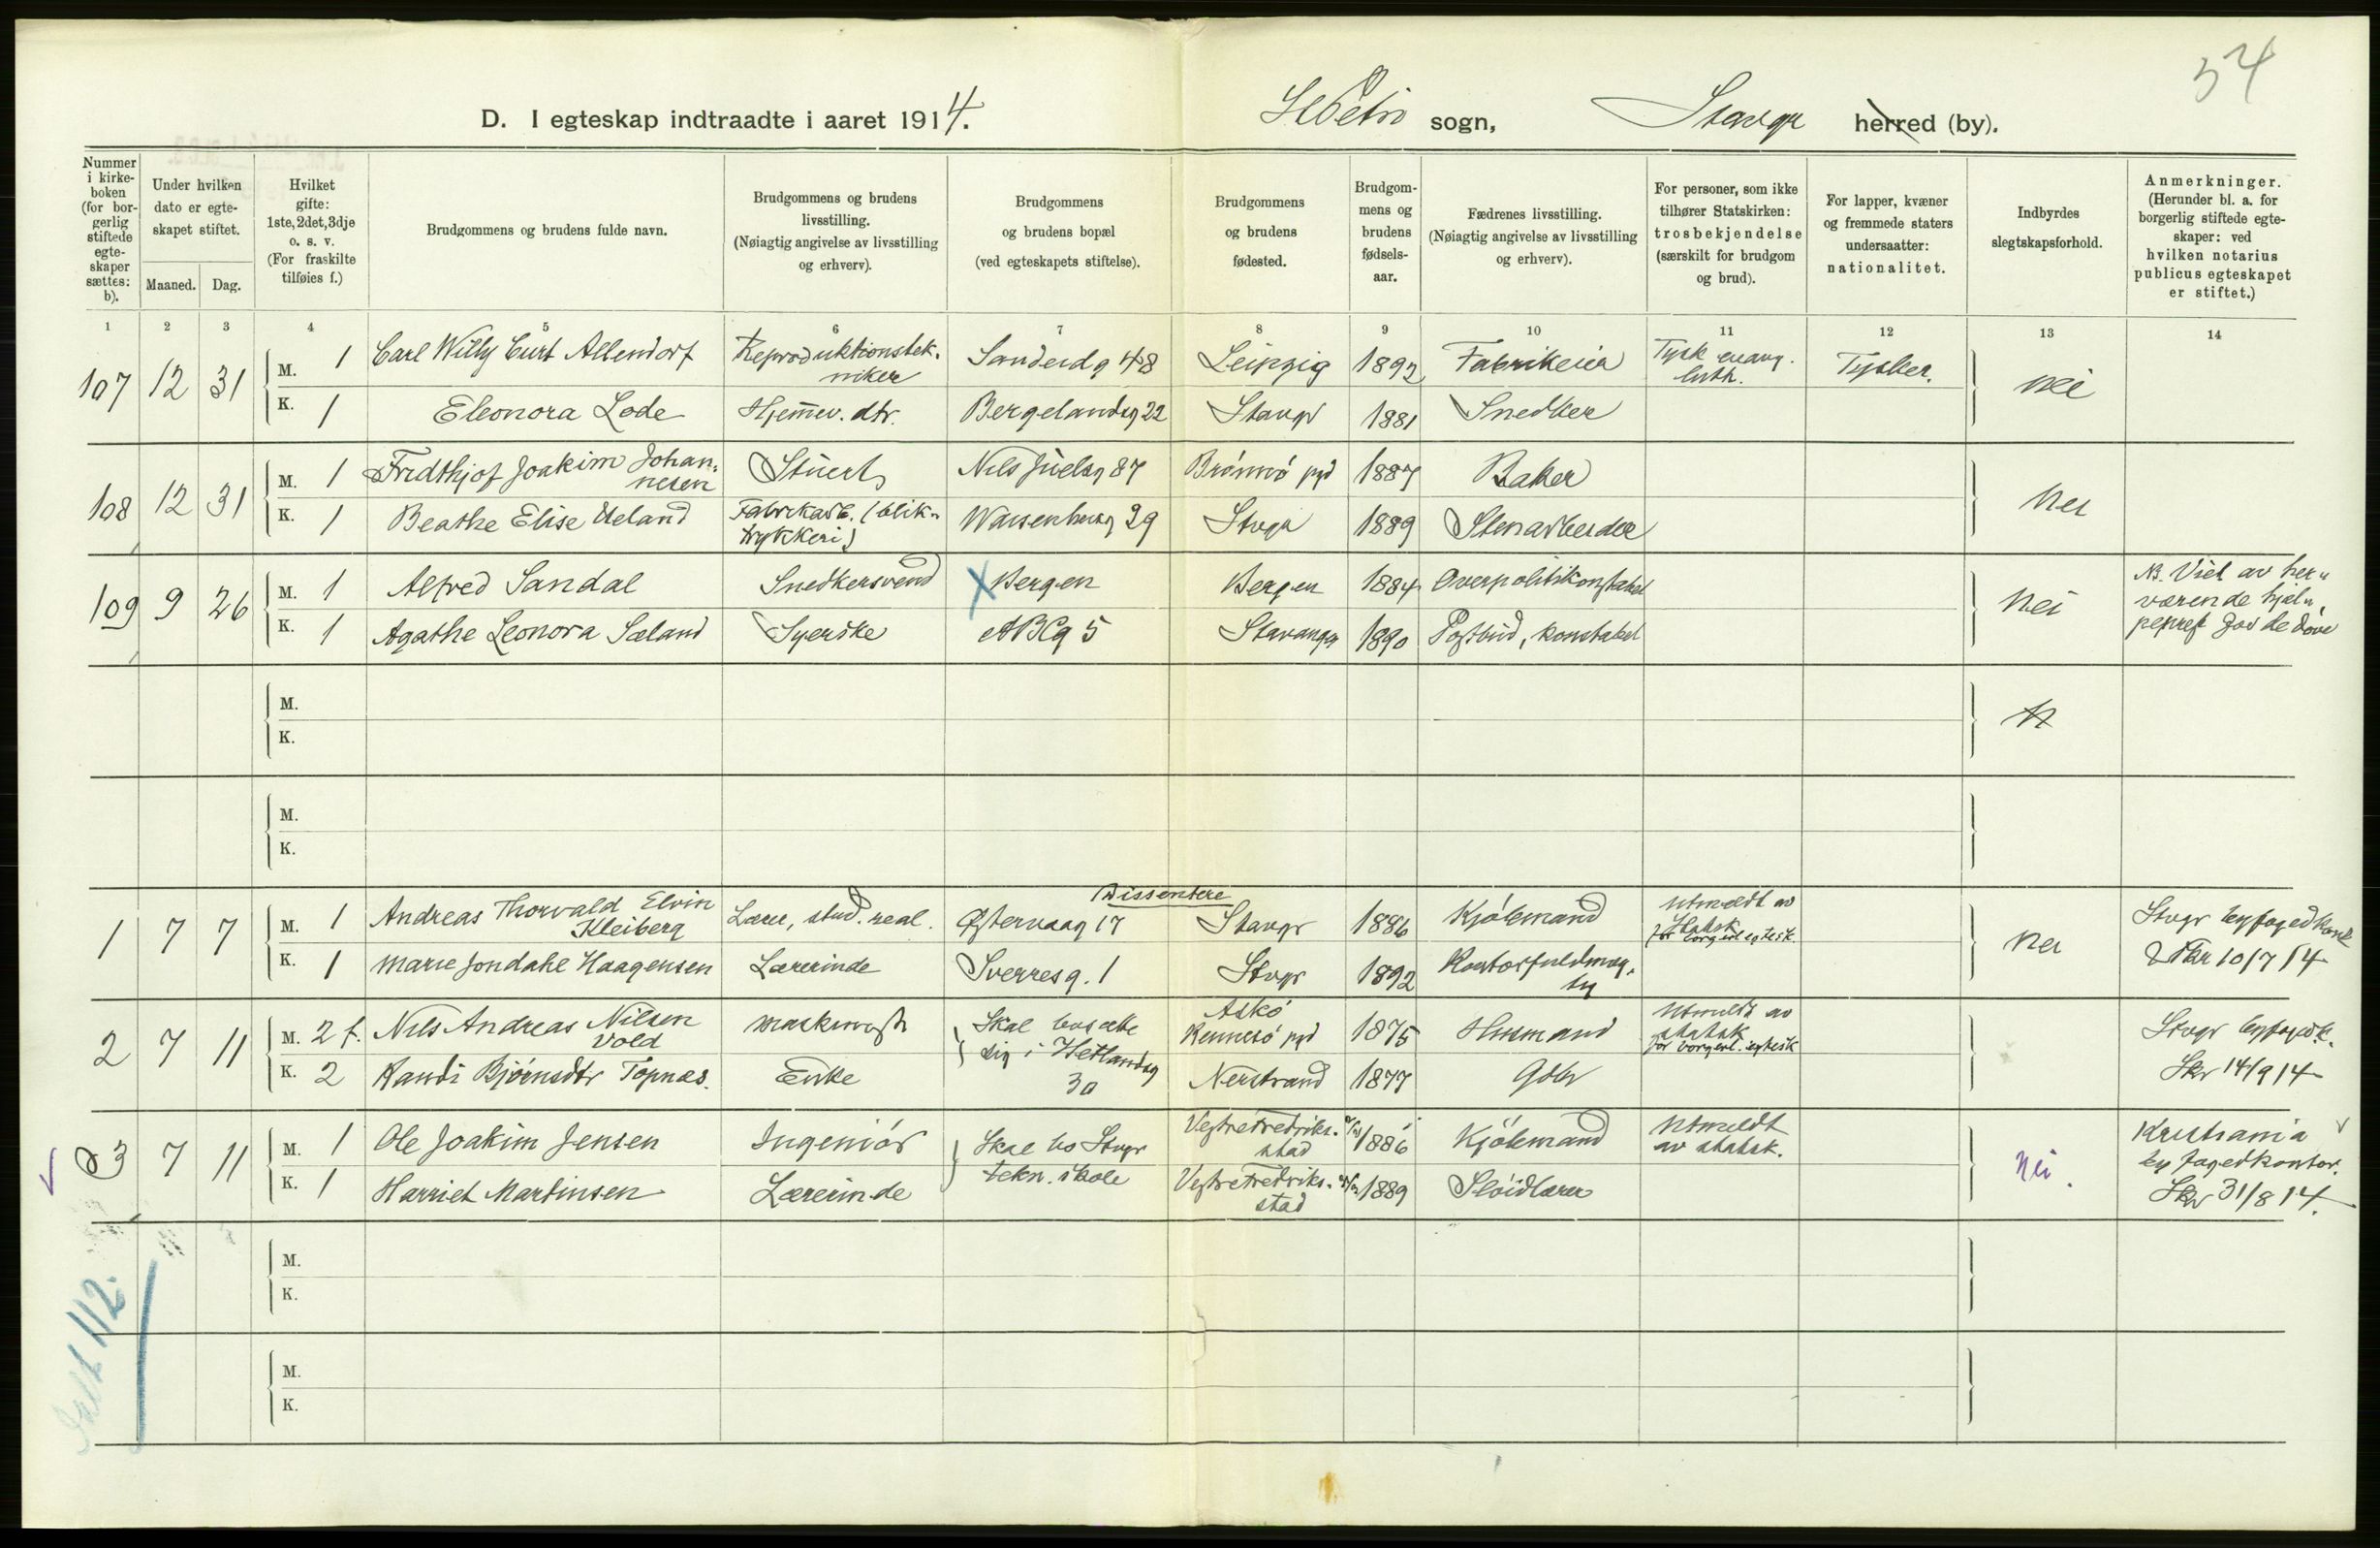 54
D. I egteskap indtraadte i aaret 1914.
sogn, Stavgr herred (by).
Nummer i kirkeboken (for borgerlig stiftede egteskaper sættes: b).
Under hvilken dato er egteskapet stiftet.
Maaned. Dag.
Hvilket gifte: 1ste, 2det, 3dje o. s. v. (For fraskilte tilføies f.)
Brudgommens og brudens fulde navn.
Brudgommens og brudens livsstilling. (Nøiagtig angivelse av livsstilling og erhverv).
Brudgommens og brudens bopæl (ved egteskapets stiftelse).
Brudgommens og brudens fødested.
Brudgommens og brudens fødselsaar.
Fædrenes livsstilling. (Nøiagtig angivelse av livsstilling og erhverv).
For personer, som ikke tilhører Statskirken: trosbekjendelse (særskilt for brudgom og brud).
For lapper, kvæner og fremmede staters undersaatter: nationalitet.
Indbyrdes slegtskapsforhold.
Anmerkninger. (Herunder bl. a. for borgerlig stiftede egteskaper: ved hvilken notarius publicus egteskapet er stiftet.)
1 2 3 4 5 6 7 8 9 10 11 12 13 14
107 12 31 M. 1 Carl Willy Curt Allendorf Reproduktionstekniker Sandeidg 48 Leipzig 1892 Fabrikeier Tysk evang. luth. Tysker. nei
K. 1 Eleonora Lode Hjemev. dtr. Bergelandsg 22 Stavgr 1881 Snedker
108 12 31 M. 1 Fridthjof Joakim Johannesen Stuert Nils Juelsg 87 Brönnö pgd 1887 Baker nei
K. 1 Beathe Elise Ueland Fabrikarb. (bliktrykkeri) Waisenhusg 29 Stvgr 1889 Stenarbeider
109 9 26 M. 1 Alfred Sandal Snedkersvend X Bergen Bergen 1884 Overpolitikonstabel nei NB. Viet av herværende hjelpeprest for de döve
K. 1 Agathe Leonora Sæland Syerske ABCg 5 Stavanger 1890 Postbud, konstabel
M.
K.
M.
K.
Dissentere
1 7 7 M. 1 Andreas Thorvald Elvin Kleiberg Lærer, stud. real. Østervaag 17 Stavgr 1886 Kjöbmand Utmeldt av Statsk for borgerl egtesk. nei Stvgr byfogedkont Skr 10/7 14
K. 1 Marie Jondahl Haagensen Lærerinde Sverresg. 1 Stvgr 1892 Kontorfuldmægtig
2 7 11 M. 2 f. Nils Andreas Nilsen Vold Maskinist Skal bosætte sig i Hetlandsg 30 Askö Rennesö pgd 1875 Husmand Utmeldt av statsk for borgerl. egtesk Stvgr byfogedk. Skr 14/9 14
K. 2 Randi Björnsdtr Topnes. Enke Nerstrand 1877 Gbr
3 7 11 M. 1 Ole Joakim Jensen Ingeniör Skal bo Stvgr tekn. skole Vestre Fredrikstad 1886 Kjöbmand Utmeldt av statsk. nei. Kristiania byfogedkontor. Skr 31/8 14.
K. 1 Harriet Martinsen Lærerinde Vestre Fredrikstad 1889 Slöidlærer
M.
K.
M.
K.
Ialt 112.